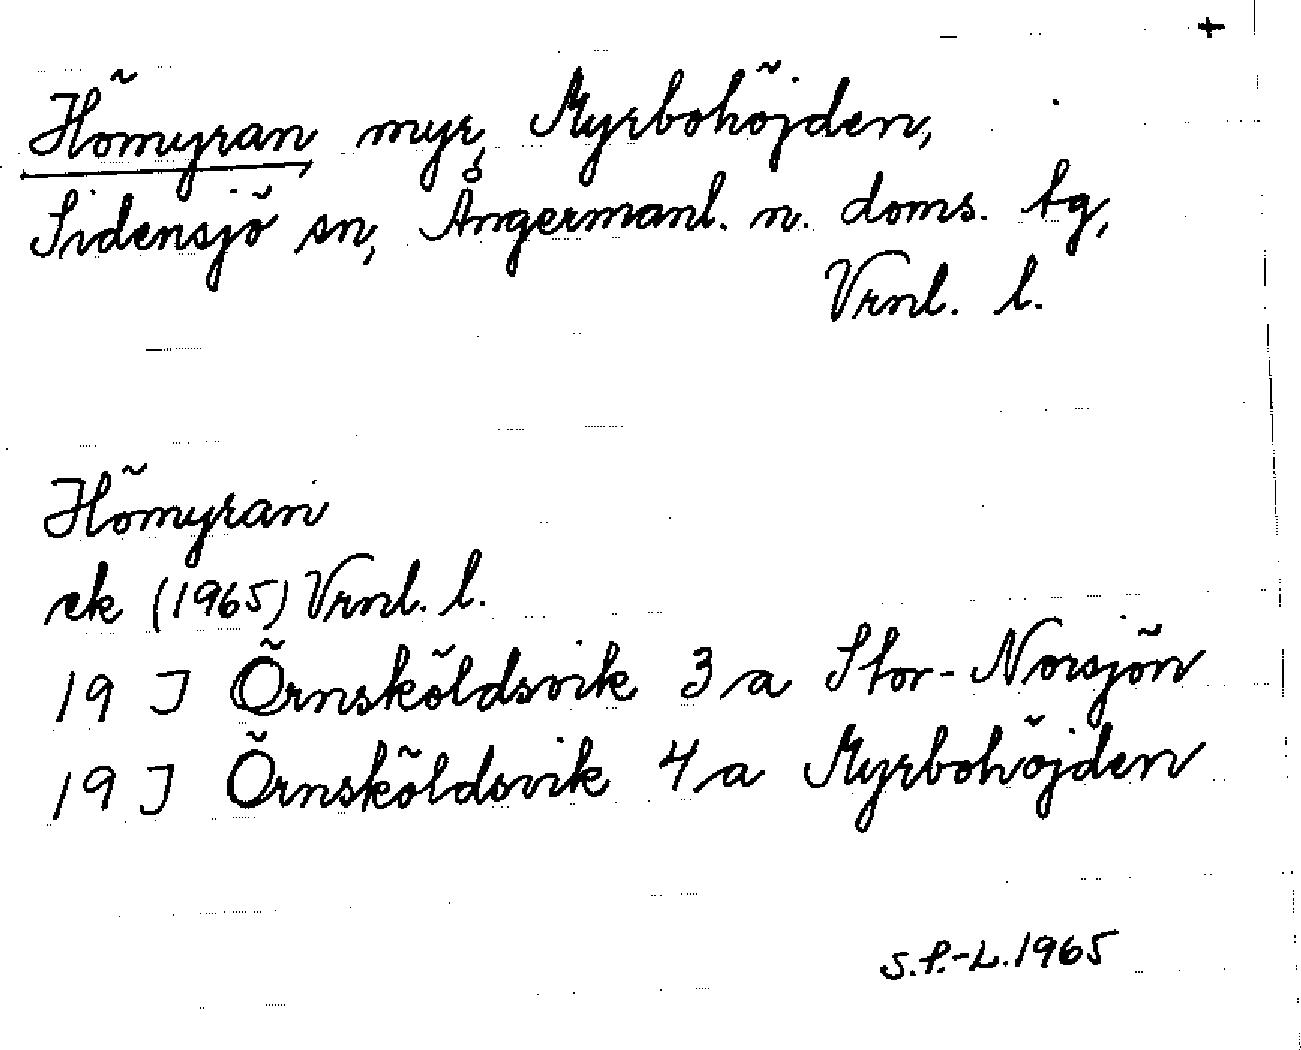 +
Hömyran myr, Myrbohöjden,
Sidensjö sn, Ångermanl. n. doms. tg,
Vrnl. l.
Hömyran
ek (1965) Vrnl. l.
19 J Örnsköldsvik 3 a Stor-Norsjön
19 J Örnsköldsvik 4 a Myrbohöjden
S.P.-L. 1965